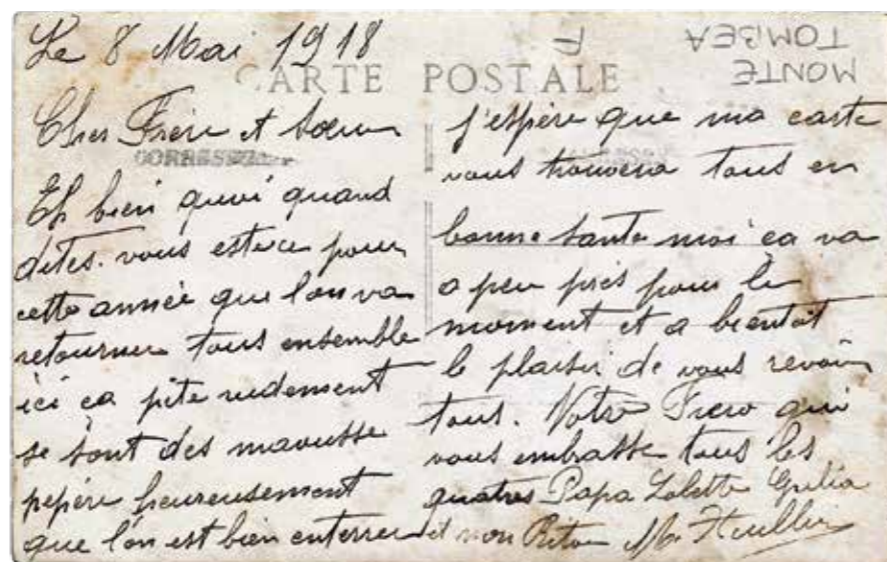 Le 8 Mai 1918
MONTE
TOMBEA
F
CARTE POSTALE
Cher Frère et Soeur
Eh bien quoi quand
dites-vous est ce pour
cette année que l'on va
retourner tous ensemble
ici ça pite rudement
se sont des mavusse
pepère heureusement
que l'on est bien enterrer
J'espère que ma carte
vous trouvera tous en
bonne Santé moi ça va
a peu près pour le
moment et a bientôt
le plaisir de vous revoir
tous. Votre Frero qui
vous embasse tous les
quatres Papa
et mon